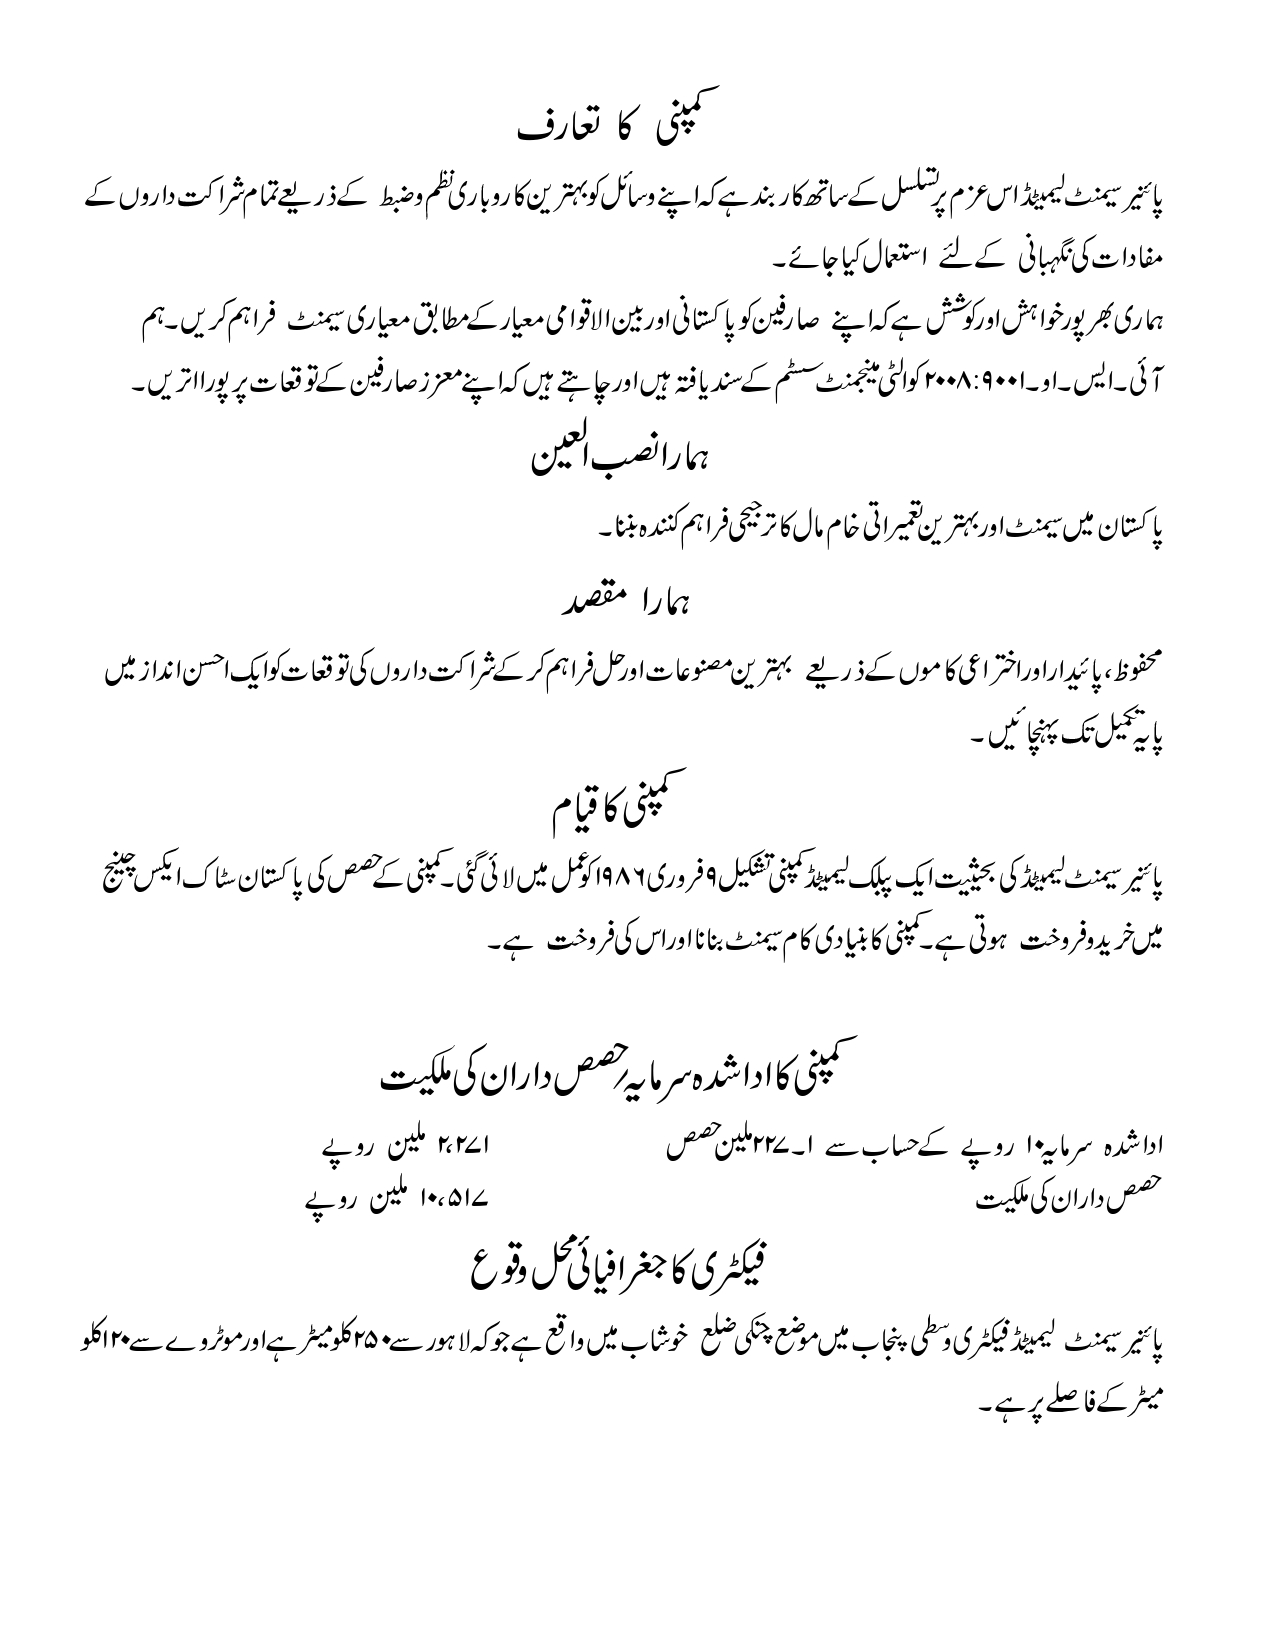 کمپنی کا تعارف
پائنیر سیمنٹ لیمیٹڈ اس عزم پر تسلسل کے ساتھ کاربند ہے کہ اپنے وسائل کو بہترین کاروباری نظم و ضبط کے ذریعے تمام شراکت داروں کے
مفادات کی نگہبانی کے لئے استعمال کیا جائے۔
ہماری بھرپور خواہش اور کوشش ہے کہ اپنے صارفین کو پاکستانی اور بین الاقوامی معیار کے مطابق معیاری سیمنٹ فراہم کریں۔ ہم
آئی۔ایس۔او۔۹۰۰۱:۲۰۰۸ کوالٹی مینجمنٹ سسٹم کے سند یافتہ ہیں اور چاہتے ہیں کہ اپنے معزز صارفین کے توقعات پر پورا اتریں۔
ہمارا نصب العین
پاکستان میں سیمنٹ اور بہترین تعمیراتی خام مال کا ترجیحی فراہم کنندہ بننا۔
ہمارا مقصد
محفوظ، پائیدار اور اختراعی کاموں کے ذریعے بہترین مصنوعات اور حل فراہم کر کے شراکت داروں کی توقعات کو ایک احسن انداز میں
پایہ تکمیل تک پہنچائیں۔
کمپنی کا قیام
پائنیر سیمنٹ لیمیٹڈ کی بحثیت ایک پبلک لیمیٹڈ کمپنی تشکیل ۹ فروری ۱۹۸۶ کو عمل میں لائی گئی۔ کمپنی کے حصص کی پاکستان سٹاک ایکس چینج
میں خرید و فروخت ہوتی ہے۔ کمپنی کا بنیادی کام سیمنٹ بنانا اور اس کی فروخت ہے۔
کمپنی کا ادا شدہ سرمایہ؍ حصص داران کی ملکیت
ادا شدہ سرمایہ ۱۰ روپے کے حساب سے ۲۲۷۔۱ ملین حصص ۲،۲۷۱ ملین روپے
حصص داران کی ملکیت ۱۰،۵۱۷ ملین روپے
فیکٹری کا جغرافیائی محل وقوع
پائنیر سیمنٹ لیمیٹڈ فیکٹری وسطی پنجاب میں موضع چنکی ضلع خوشاب میں واقع ہے جو کہ لاہور سے ۲۵۰ کلومیٹر ہے اور موٹروے سے ۱۲۰ کلو
میٹر کے فاصلے پر ہے۔